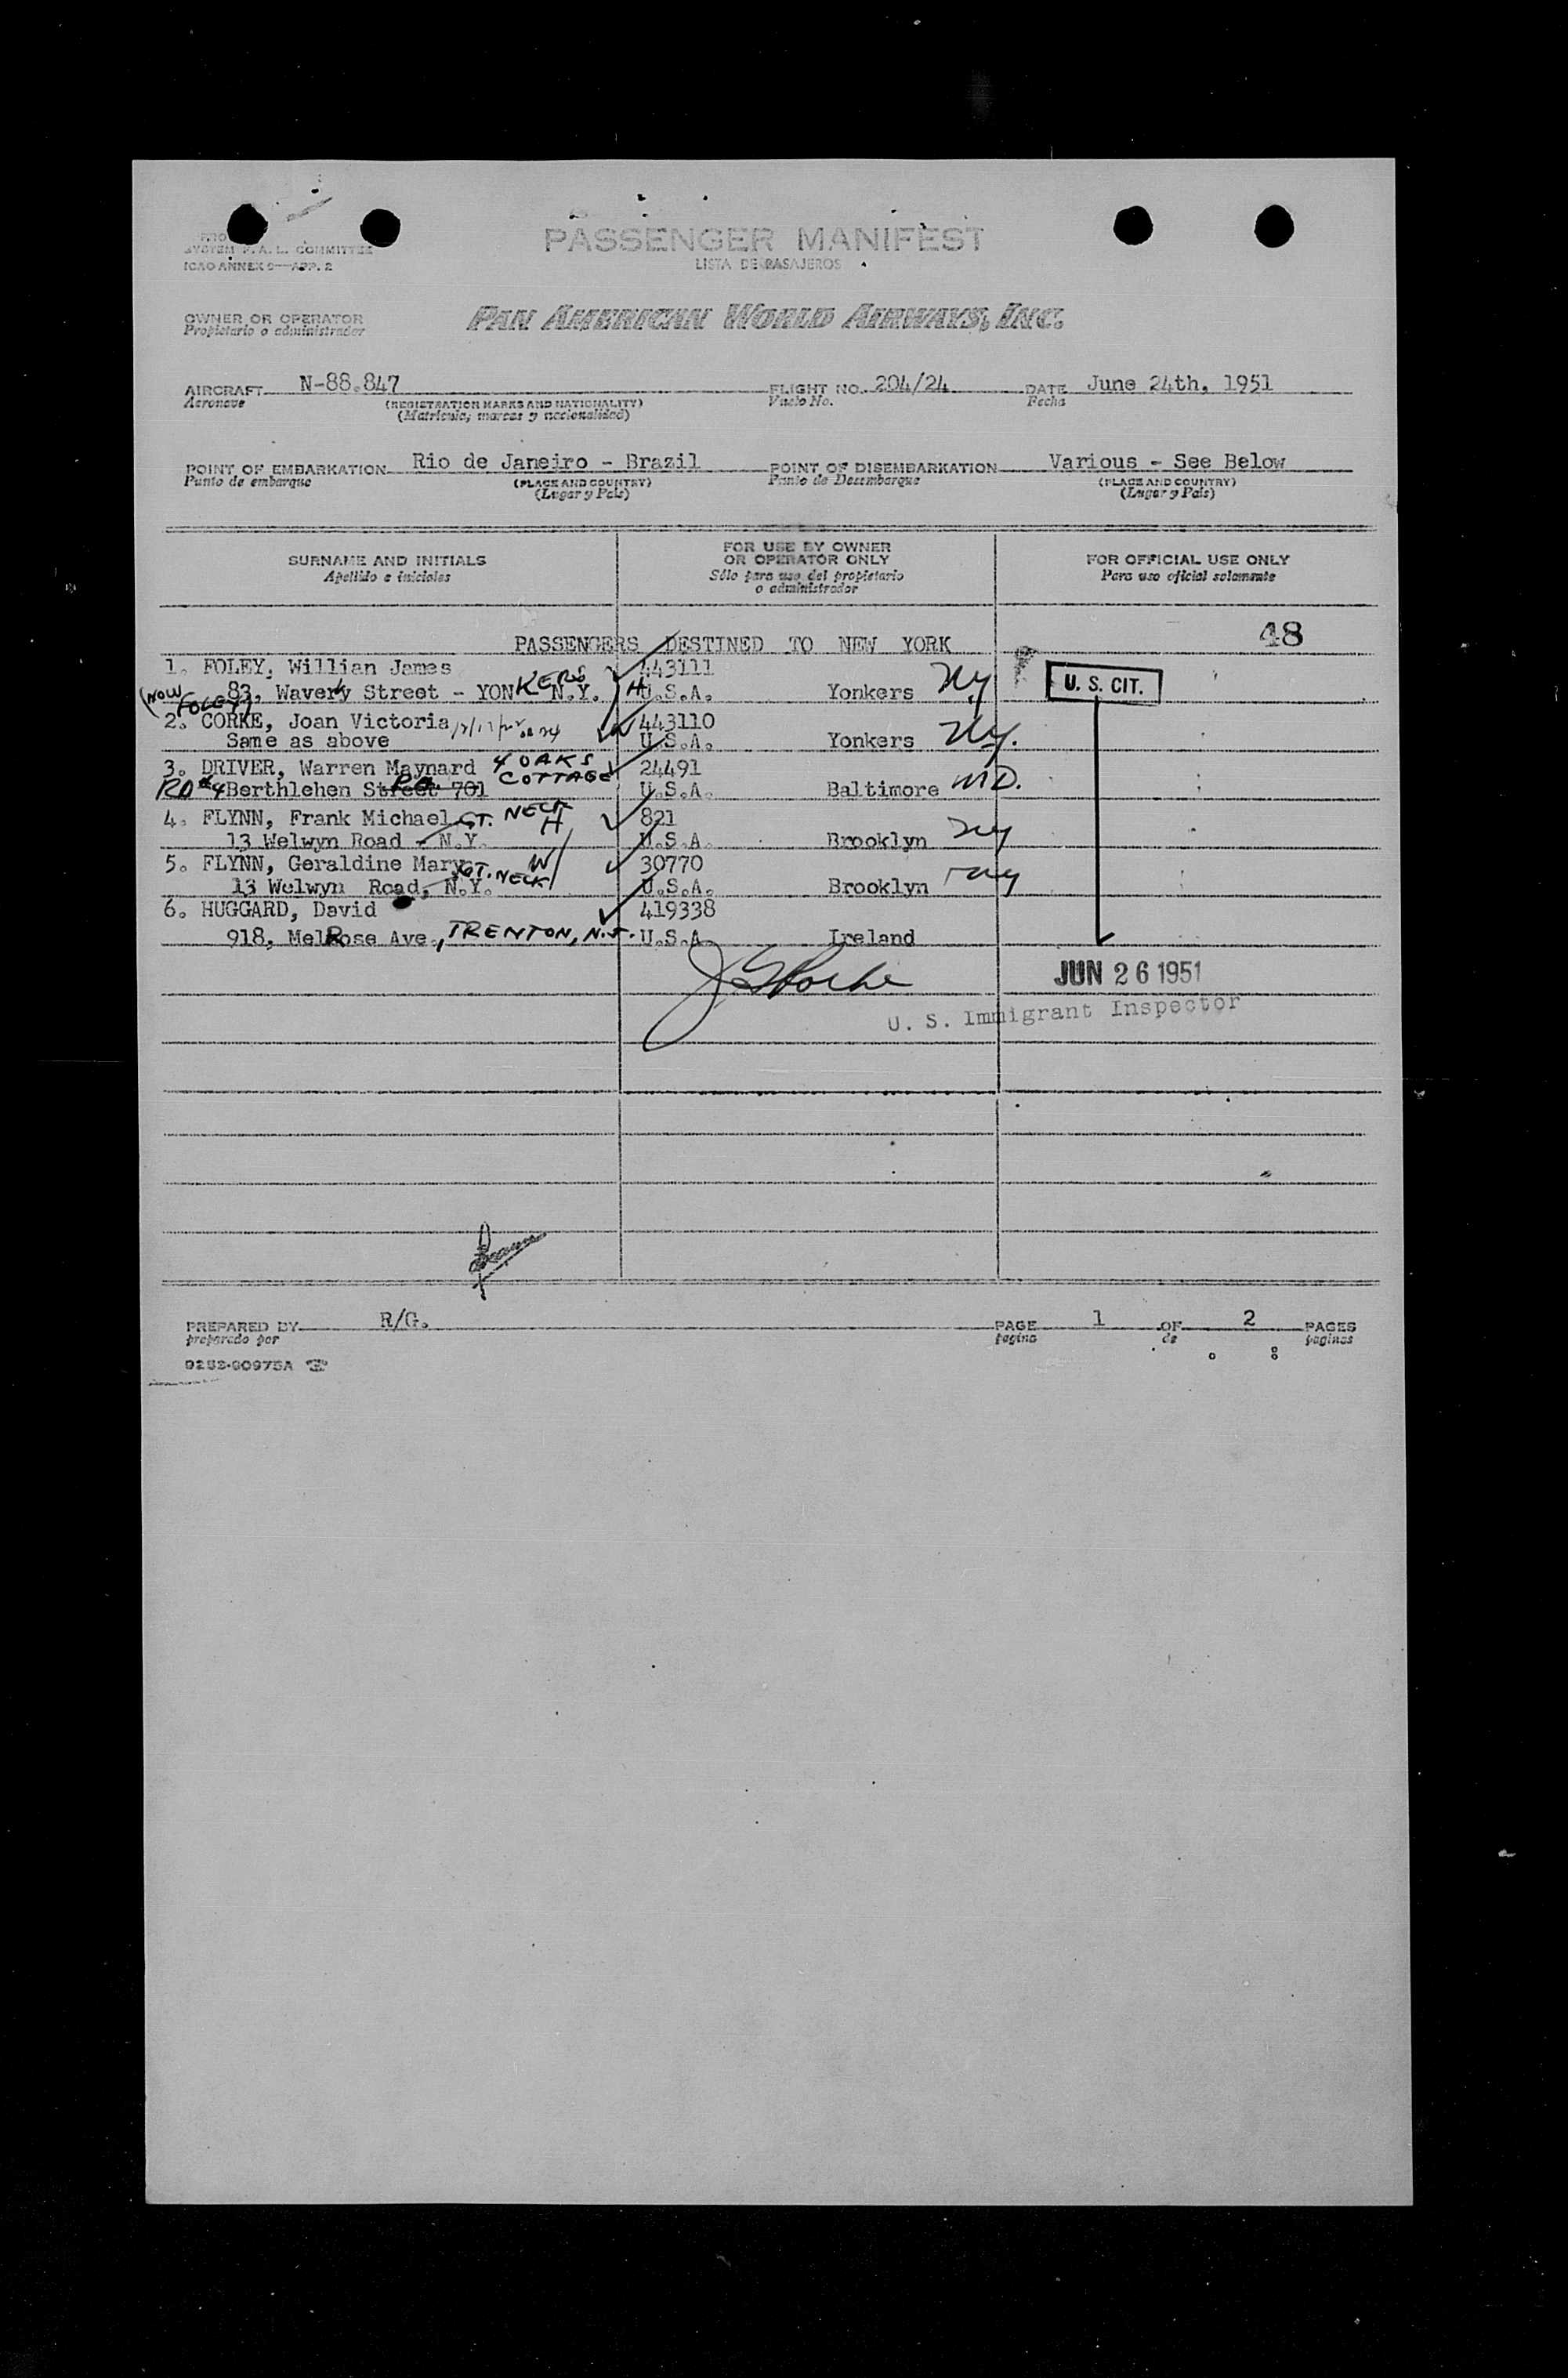 SYSTEM F.A.L. COMMITTEE
ICAO ANNEX 9—APP. 2
PASSENGER MANIFEST
LISTA DE PASAJEROS
OWNER OR OPERATOR
Propietario o administrador
PAN AMERICAN WORLD AIRWAYS, INC.
AIRCRAFT N-88.847 FLIGHT NO. 204/24 DATE June 24th, 1951
Aeronave (REGISTRATION MARKS AND NATIONALITY) Vuelo No. Fecha
(Matricula, marcas y nacionalidad)
POINT OF EMBARKATION Rio de Janeiro - Brazil POINT OF DISEMBARKATION Various - See Below
Punto de embarque (PLACE AND COUNTRY) Punto de Desembarque (PLACE AND COUNTRY)
(Lugar y País) (Lugar y País)
SURNAME AND INITIALS FOR USE BY OWNER OR OPERATOR ONLY FOR OFFICIAL USE ONLY
Apellido e iniciales Sólo para uso del propietario o administrador Para uso oficial solamente
PASSENGERS DESTINED TO NEW YORK 48
1. FOLEY, Willian James 443111
83, Waverly Street - YONKERS N.Y. H U.S.A. Yonkers NY U. S. CIT.
(NOW FOLEY)
2. CORKE, Joan Victoria W 443110
Same as above U.S.A. Yonkers NY.
3. DRIVER, Warren Maynard 4 OAKS COTTAGE 24491
RD #4 Berthlehen Street 701 RD. U.S.A. Baltimore MD.
4. FLYNN, Frank Michael GT. NECK H 821
13 Welwyn Road - N.Y. U.S.A. Brooklyn NY
5. FLYNN, Geraldine Mary W 30770
13 Welwyn Road, N.Y. GT. NECK U.S.A. Brooklyn NY
6. HUGGARD, David 419338
918, MelRose Ave., TRENTON, N.J. U.S.A. Ireland
JUN 26 1951
U. S. Immigrant Inspector
PREPARED BY R/G. PAGE 1 OF 2 PAGES
preparado por pagina de paginas